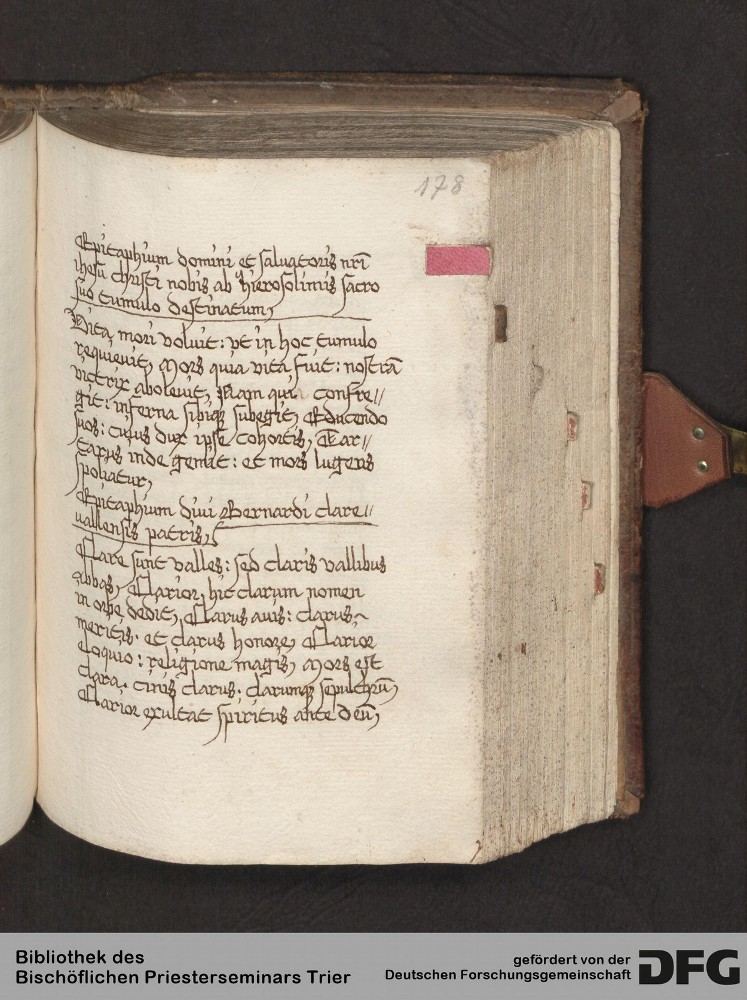 178
Epitaphium domini et saluatoris nr̄i
ihesu christi nobis ab hierosolimis sacro
suo tumulo destinatum,
Vita mori voluit: vt in hoc tumulo
requieuit, Mors quia vita fuit: nostrā
victrix aboleuit, Nam qui confre//
git: inferna sibiqꝫ subegit, Educendo
suos: cuius dux ipse cohortis, Tar//
tarus inde gemit: et mors lugens
spoliatur,
Epitaphium diui Bernardi clare//
uallensis patris,
Clare sunt valles: sed claris vallibus
abbas, Clarior, hic clarum nomen
in orbe dedit, Clarus auis: clarus
meritis. et clarus honore, Clarior
eloquio: religione magis, Mors est
clara. cinis clarus. clarumqꝫ sepulchrū,
Clarior exultat spiritus ante deū,
Bibliothek des
Bischöflichen Priesterseminars Trier
gefördert von der
Deutschen Forschungsgemeinschaft
DFG